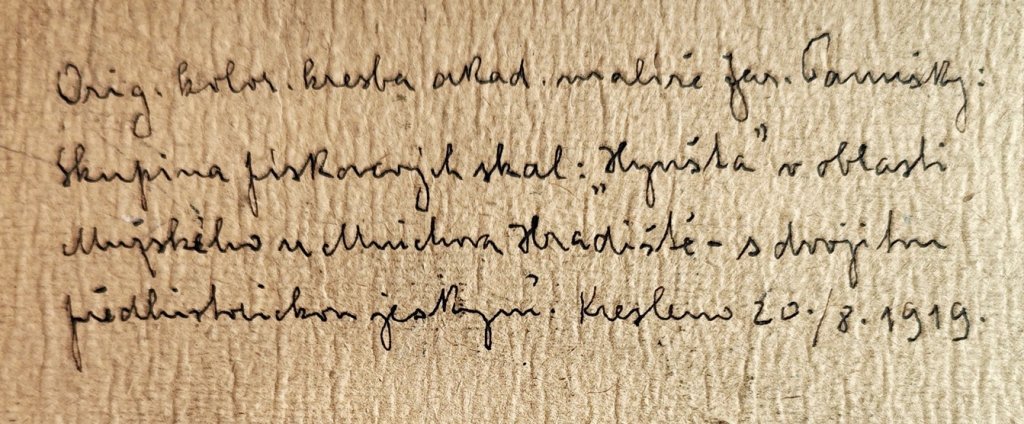 Orig. kolor. kresba akad. malíře Jar. Panušky:
Skupina pískových skal: „Hynšta" v oblasti
Mužského u Mnichova Hradiště – s dvojitou
předhistorickou jeskyní. Kresleno 20./8. 1919.